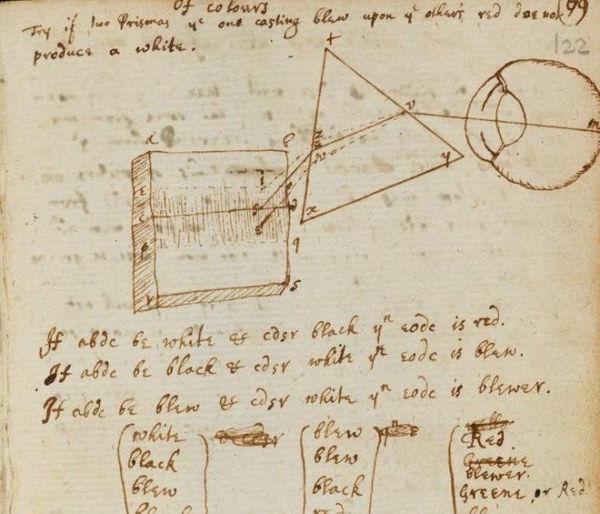 Of colours 99
Try if two Prismas yᵉ one casting blew upon yᵉ others red doe not
122
produce a white.
t
v
m
z
w
y
x
a
r
q
s
If abdc be white & cdsr black yⁿ eodc is red.
If abdc be black & cdsr white yⁿ eodc is blew.
If abdc be blew & cdsr white yⁿ eodc is blewer.
white blew Red
black blew Greene
blewer.
blew black Greene, or Red
black red